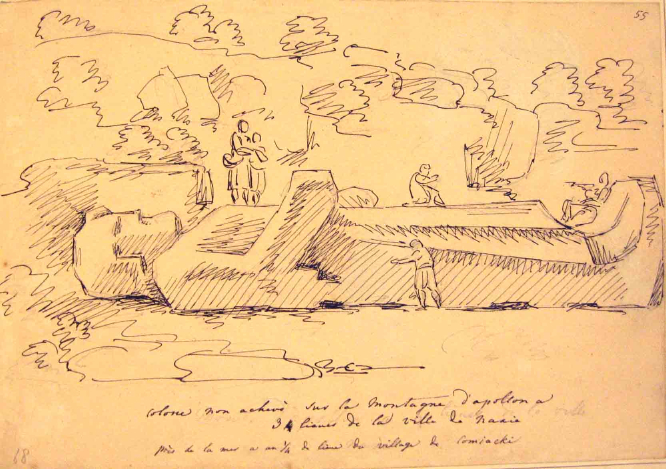 55
colosse non achevé sur la montagne d'apollon a
3 lieues de la ville de naxie
près de la mer a un ¼ de lieue du village de comiacki
68